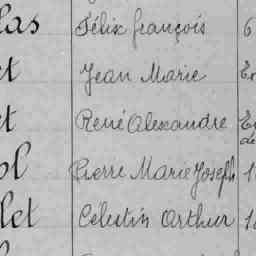 las Félix françois 6
et Jean Marie En
et René Alexandre En
de
ol Pierre Marie Joseph 1
let Célestin Arthur 1